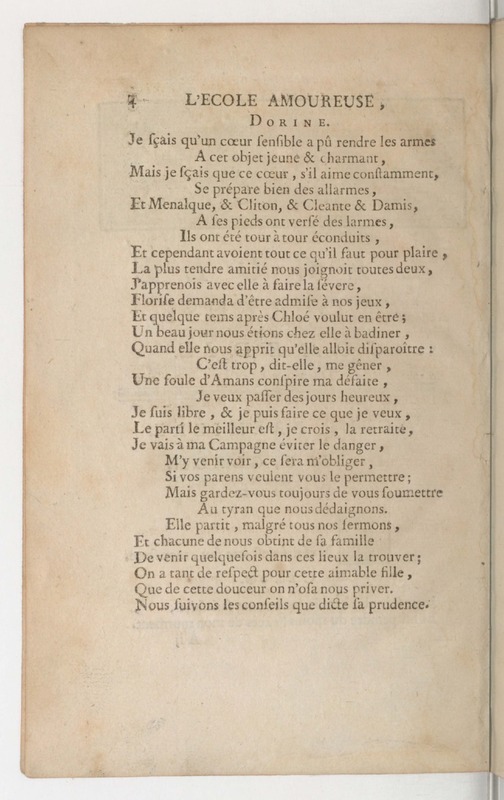 4 L'ECOLE AMOUREUSE,
DORINE.
Je ſçais qu'un cœur ſenſible a pû rendre les armes
A cet objet jeune & charmant,
Mais je ſçais que ce cœur, s'il aime conſtamment,
Se prépare bien des allarmes,
Et Menalque, & Cliton, & Cleante & Damis,
A ſes pieds ont verſé des larmes,
Ils ont été tour à tour éconduits,
Et cependant avoient tout ce qu'il faut pour plaire,
La plus tendre amitié nous joignoit toutes deux,
J'apprenois avec elle à faire la ſévere,
Floriſe demanda d'être admiſe à nos jeux,
Et quelque tems après Chloé voulut en être;
Un beau jour nous étions chez elle à badiner,
Quand elle nous apprit qu'elle alloit diſparoitre:
C'eſt trop, dit-elle, me géner,
Une foule d'Amans conſpire ma défaite,
Je veux paſſer des jours heureux,
Je ſuis libre, & je puis faire ce que je veux,
Le parti le meilleur eſt, je crois, la retraite,
Je vais à ma Campagne éviter le danger,
M'y venir voir, ce ſera m'obliger,
Si vos parens veulent vous le permettre;
Mais gardez-vous toujours de vous ſoumettre
Au tyran que nous dédaignons.
Elle partit, malgré tous nos ſermons,
Et chacune de nous obtint de ſa famille
De venir quelquefois dans ces lieux la trouver;
On a tant de reſpect pour cette aimable fille,
Que de cette douceur on n'oſa nous priver.
Nous ſuivons les conſeils que dicte ſa prudence.